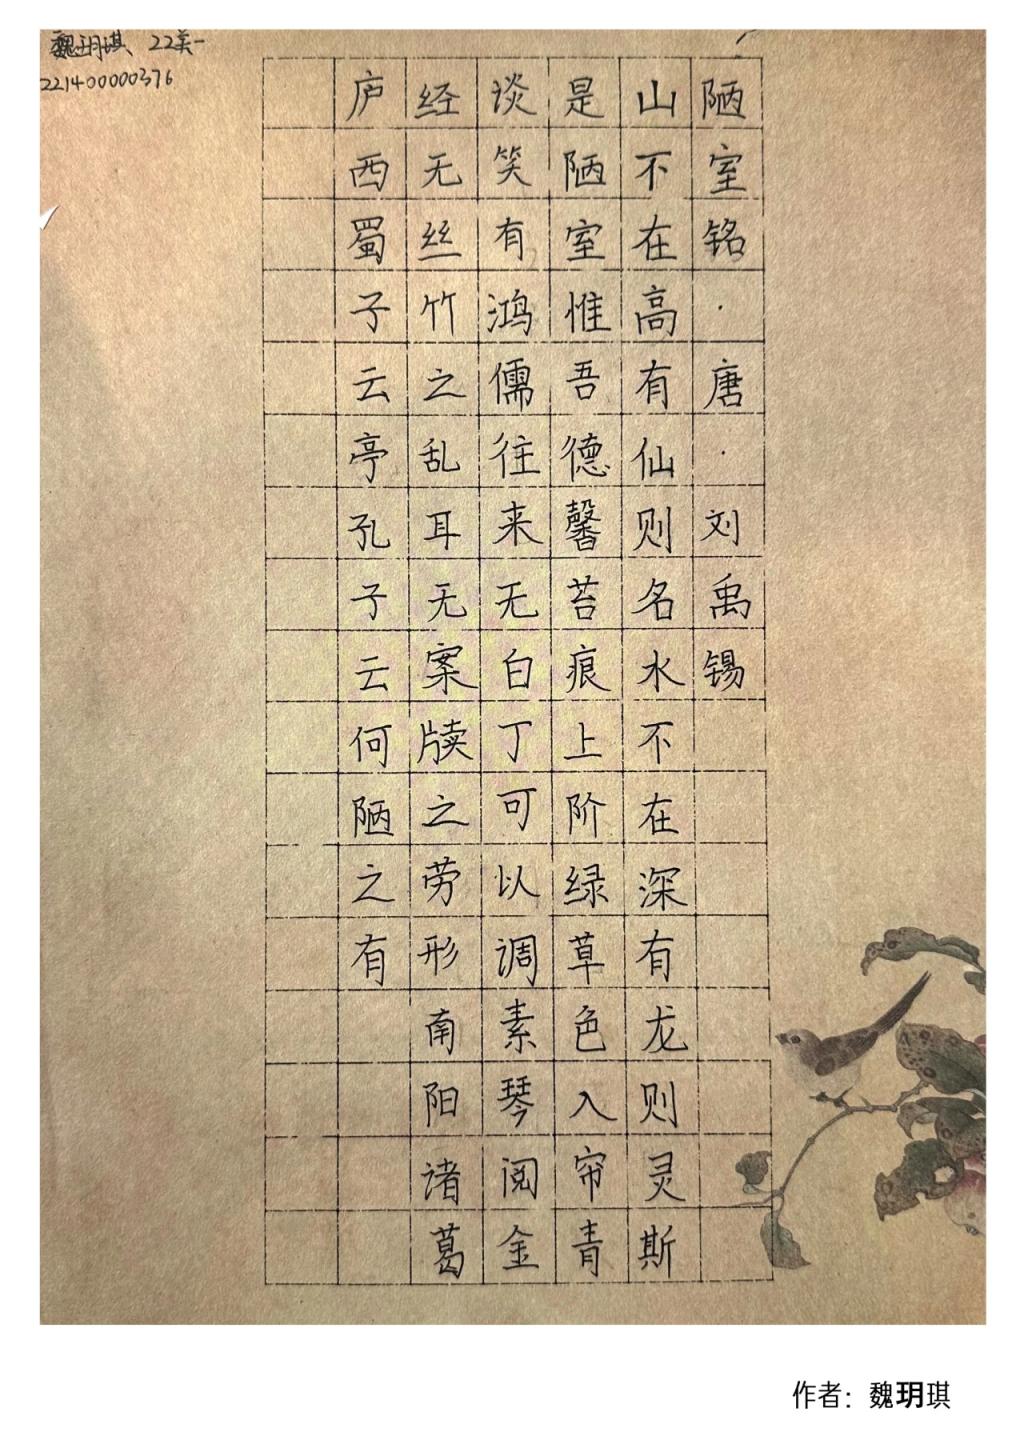 魏玥琪 22美一
221400000376
陋室铭·唐·刘禹锡
山不在高有仙则名水不在深有龙则灵斯
是陋室惟吾德馨苔痕上阶绿草色入帘青
谈笑有鸿儒往来无白丁可以调素琴阅金
经无丝竹之乱耳无案牍之劳形南阳诸葛
庐西蜀子云亭孔子云何陋之有
作者：魏玥琪